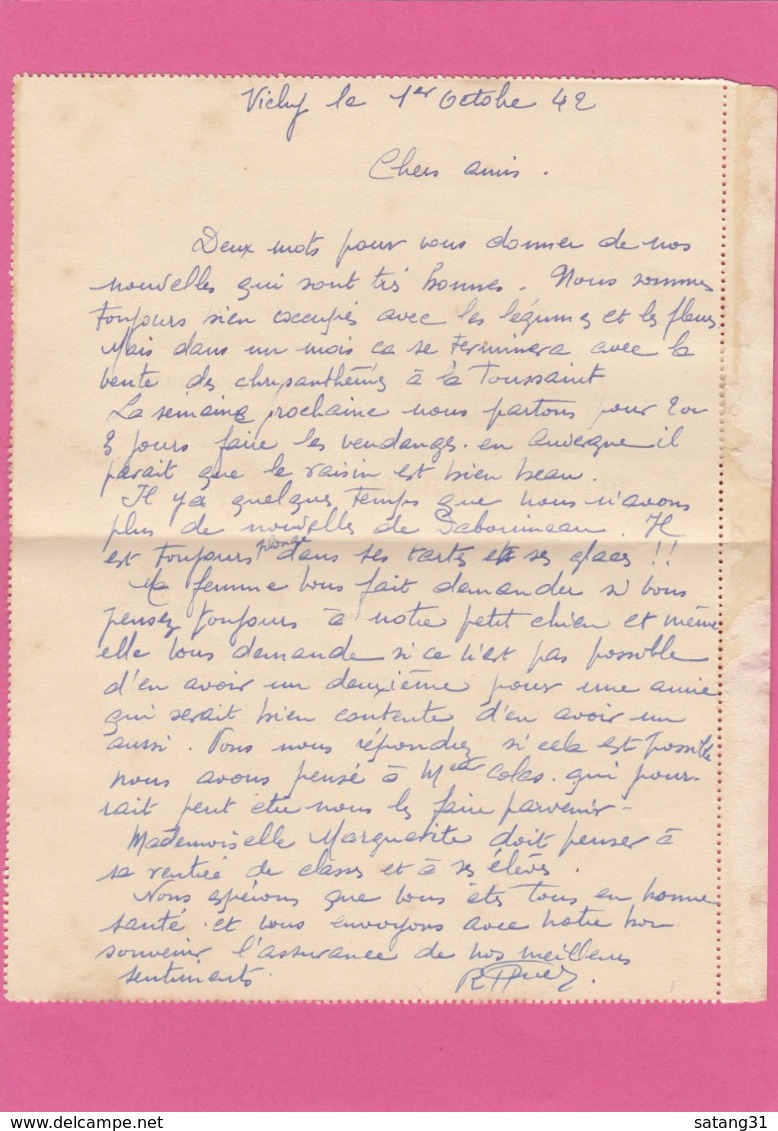 Vichy le 1er Octobre 42
Chers amis.
Deux mots pour vous donner de nos
nouvelles qui sont très bonnes. Nous sommes
toujours bien occupés avec les légumes et les fleurs
Mais dans un mois ca se terminera avec la
vente des chrysanthèmes à la Toussaint
La semaine prochaine nous partons pour 2 ou
3 jours faire les vendanges. en Auvergne il
parait que le raisin est bien beau.
Il y a quelques temps que nous n'avons
plus de nouvelles de Dabouineau. Il
est toujours plongé dans ses tartes et ses glaces !!
Ma femme vous fait demander si vous
pensez toujours à notre petit chien et même
elle vous demande si ce n'est pas possible
d'en avoir un deuxième pour une amie
qui serait bien contente d'en avoir un
aussi. Vous nous répondrez si cela est possible
nous avons pensé à Mr Colas. qui pour-
rait peut être nous les faire parvenir -
Mademoiselle Marguerite doit penser à
sa rentrée de classes et à ses élèves.
Nous espérons que vous êtes tous en bonne
santé. et vous envoyons avec notre bon
souvenir l'assurance de nos meilleurs
sentiments.
delcampe.net
satang31